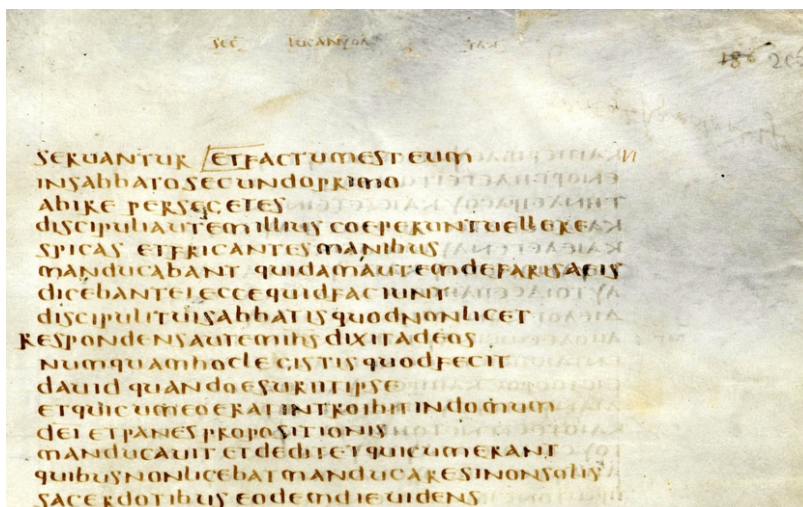 SEC LUCAN
186
SERUANTUR ETFACTUMESTEUM
INSABBATOSECUNDOPRIMO
ABIRE PERSEGETES
DISCIPULIAUTEMILLIUS COEPERUNTUELLERE
SPICAS ETFRICANTESMANIBUS
MANDUCABANT QUIDAMAUTEMDEFARISAEIS
DICEBANTEI ECCEQUIDFACIUNT
DISCIPULITUISABBATIS QUODNONLICET
RESPONDENSAUTEMIHSDIXITADEOS
NUMQUAMHOCLEGISTISQUODFECIT
DAUID QUANDOESURIITIPSE
ETQUICUMEOERATINTROIBITINDOMUM
DEI ETPANESPROPOSITIONIS
MANDUCAUIT ETDEDITETQUICUMERANT
QUIBUSNONLICEBATMANDUCARESINONSOLIS
SACERDOTIBUS EODEMDIEUIDENS